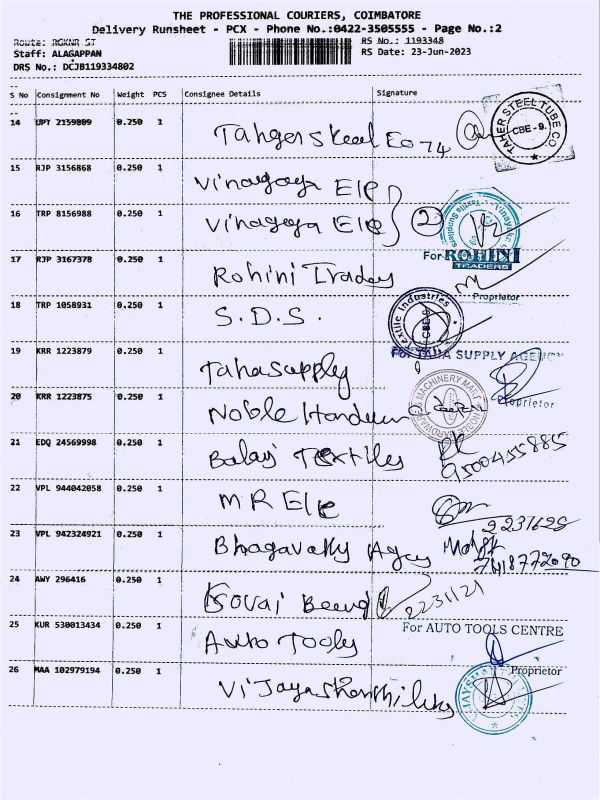 THE PROFESSIONAL COURIERS, COIMBATORE
Delivery Runsheet - PCX - Phone No.:0422-3505555 - Page No.:2
Route: RGKNR ST
RS No.: 1193348
Staff: ALAGAPPAN
RS Date: 23-Jun-2023
DRS No.: DCJB119334802
S No Consignment No Weight PCS Consignee Details Signature
14 UPT 2159809 0.250 1
TAHER STEEL TUBE CO. CBE-9.
15 RJP 3156868 0.250 1 Vinagaya Ele
16 TRP 8156988 0.250 1 Vinagaya Ele 2
17 RJP 3167378 0.250 1 Rohini Traders
For ROHINI TRADERS
Proprietor
18 TRP 1058931 0.250 1 S.D.S.
Textile Industries CBE-9
19 KRR 1223879 0.250 1 Taha supply
For TAHA SUPPLY AGENCY
Proprietor
20 KRR 1223875 0.250 1 Noble
21 EDQ 24569998 0.250 1 Balaji Textiles
9500455885
22 VPL 944042058 0.250 1 M R Ele
2231628
23 VPL 942324921 0.250 1 Bhagavathy Agency
24 AWY 296416 0.250 1 Kovai
2231121
25 KUR 530013434 0.250 1 Auto Tools
For AUTO TOOLS CENTRE
Proprietor
26 MAA 102979194 0.250 1